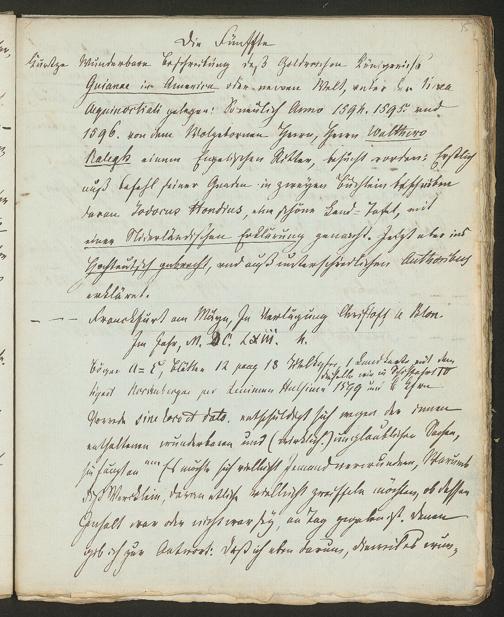 Die Fünffte
Kurtze Wunderbare Beschreibung deß Goldreichen Königreichs
Guianae in America oder newen Welt, unter der Linea
Aequinoctiali gelegen: So neulich Anno 1594. 1595 und
1596. von dem Wolgebornen Herrn, Herrn Walthero
Ralegh einem Engelischen Ritter, besucht worden: Erstlich
auß befehl seiner Gnaden in zweyen Büchlein beschrieben
daraus Jodocus Hondius, eine schöne Land-Tafel, mit
einer Niderländischen Erklärung gemacht. Jetzt aber ins
Hochteutsch gebracht, und auß unterschiedlichen Authoribus
erkläret.
Franckfurt am Mayn, In Verlegung Christoff le Blon.
Im Jahr, M. DC. LXIII. 4.
Bogen A–C, Blätter 12 pag 18 1 Landkarte mit dem
1599
Vorrede sine loco et dato. entschuldigt sich wegen der innen
enthaltenen wunderbaren und (wirklich) unglaublichen Sachen,
sie fängt an Es möchte sich vielleicht Jemand verwundern, Warumb
diß Wercklein, daran etliche vielleicht zweiffeln möchten, ob dessen
Inhalt war oder nicht war sey, an Tag gegeben ist. Denen
gib ich zur Antwort: Daß ich eben darum, dieweil es wun-